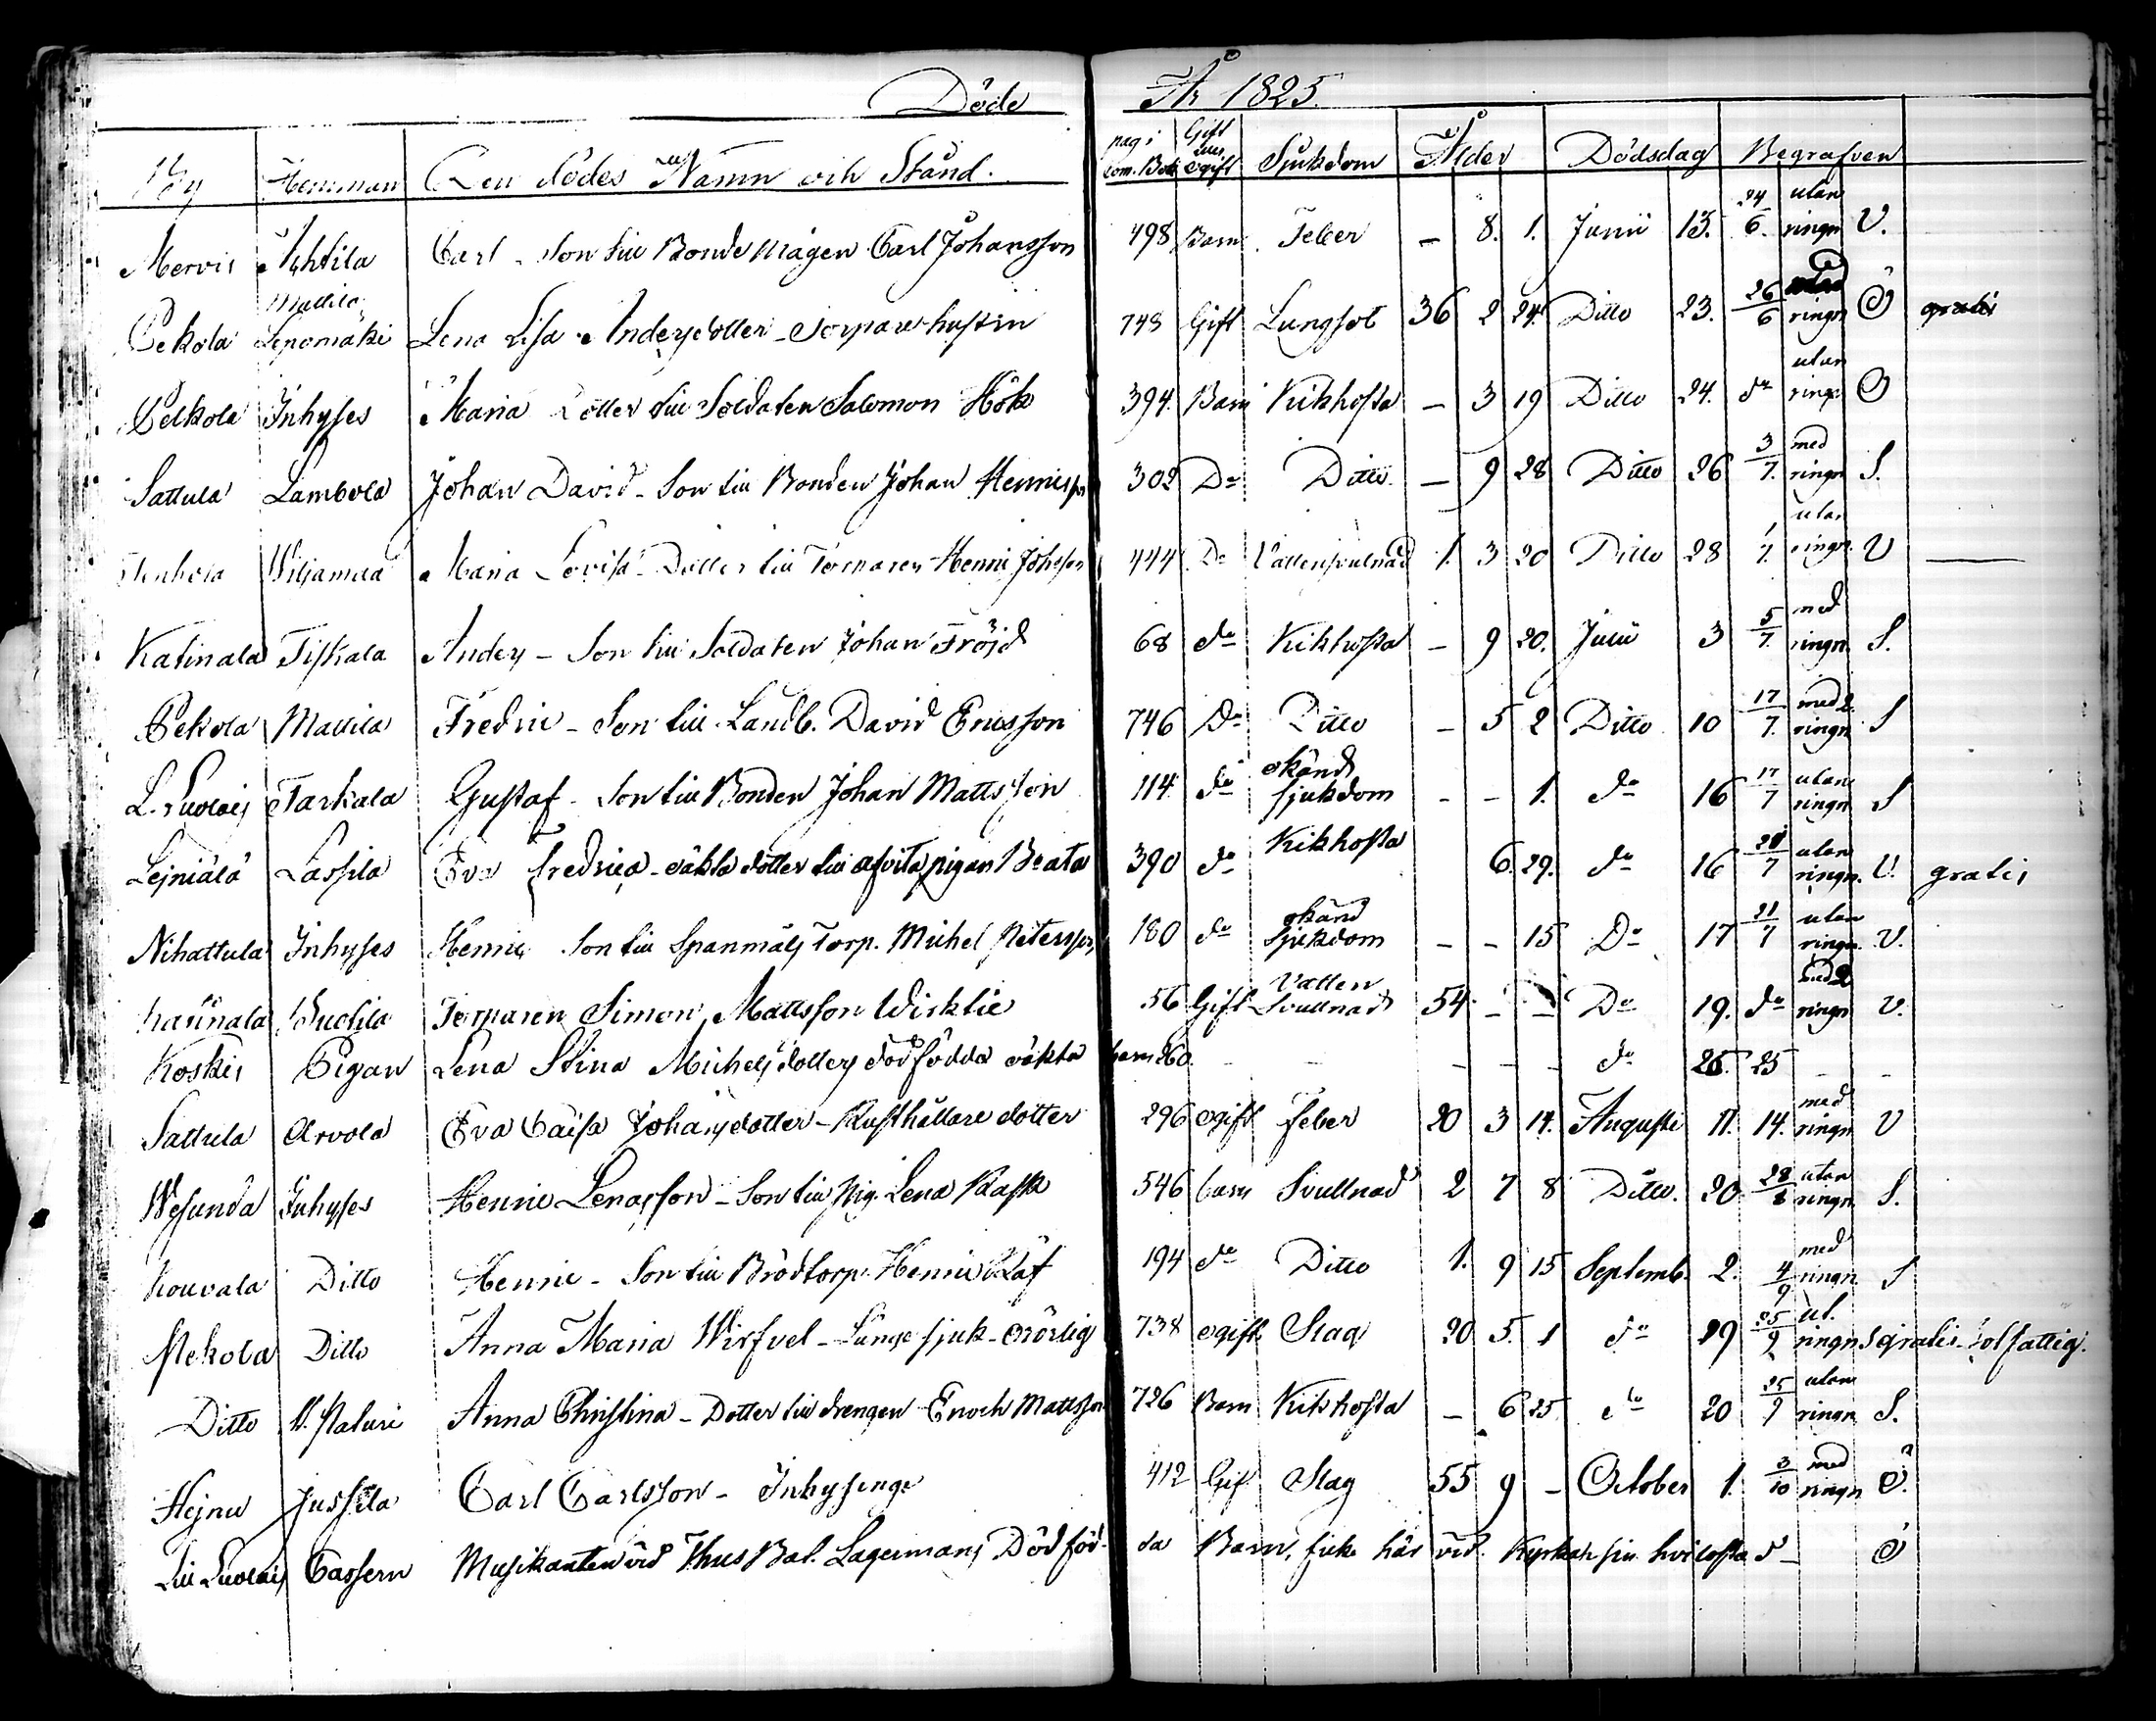 Döde År 1825.
By Hemman Den dödes Namn och Stånd. pag i com. Bok Gift eller ogift Sjukdom Ålder Dödsdag Begrafven
Mervis Ahtila Carl - Son till Bonde mågen Carl Johansson 498 Barn Feber - 8. 1. Junii 13. 24/6. utan ringn V.
Pekola Mattila Lepomäki Lena Lisa Andersdotter - Torpare hustru 748 Gift Lungsot 36 2 24. Ditto 23. 26/6 ringn Ö gratis
Pelkola Inhyses Maria Dotter till Soldaten Salomon Hök 394. Barn Kikhosta - 3 19 Ditto 24. do utan ringn Ö
Sattula Lambola Johan David - Son till Bonden Johan Henricsson 302 Do Ditto - 9 28 Ditto 26 3/7. med ringn S.
Wiljamaa Maria Lovisa - Dotter till Torparen Henric Johsson 444 Do Vattensvulnad 1. 3 20 Ditto 28 1/7. utan ringn V -
Katinala Tiskala Anders - Son till Soldaten Johan Fröjd 68 do Kikhosta - 9 20. Julii 3 5/7. med ringn S.
Pekola Mattila Fredric - Son till Landb. David Ericsson 746 Do Ditto - 5 2 Ditto 10 17/7. med 2 ringn S
L. Luolais Tarkala Gustaf - Son till Bonden Johan Mattsson 114 do okänd sjukdom - - 1. do 16 17/7 utan ringn S
Lejniälä Lassila Eva Fredrica - oäkta dotter till afvita pigan Beata 390 do Kikhosta 6. 29. do 16 /7 utan ringn. V. gratis
Nihattula Inhyses Henric Son till Spanmåls Torp. Michel Petersson 180 do okänd Sjukdom - - 15 Do 17 21/7 utan ringn. V.
Katinala Torparen Simon Mattsson Wirklie 56 Gift Vatten Svullnad 54 - - Do 19. do med 2 ringn V.
Koskis Pigan Lena Stina Michelsdotters dödfödda oäkta barn 260. - - - - - do 25. 25 - -
Sattula Arvola Eva Caisa Johansdotter - Rusthållare dotter 296 ogift feber 20 3 14. Augusti 11. 14. med ringn V
Wesunda Inhyses Henric Lenasson - Son till Pig. Lena Rask 546 barn Svullnad 2 7 8 Ditto. 20 28/8 utan ringn S.
Kouvala Ditto Henric - Son till Brödtorp. Henric Räf 194 do Ditto 1. 9 15 Septemb. 2. 4/9 med ringn S
Pekola Ditto Anna Maria Wirfvel - Länge sjuk - orörlig 738 ogift Slag 20 5. 1 do 19 25/9 ut. ringn S gratis - Rotfattig.
Ditto Anna Christina - Dotter till drengen Enoch Mattsson 726 Barn Kikhosta - 6 25 do 20 25/9 utan ringn S.
Hejnu Jussila Carl Carlsson - Inhysinge 412 Gift Slag 55 9 - October 1. 3/10 med ringn Ö.
Lill Luolais Casern Musikanten vid Thus Bat. Lagermans Dödföd- da Barn, fick här vid Kyrkan sin hvilostad - Ö